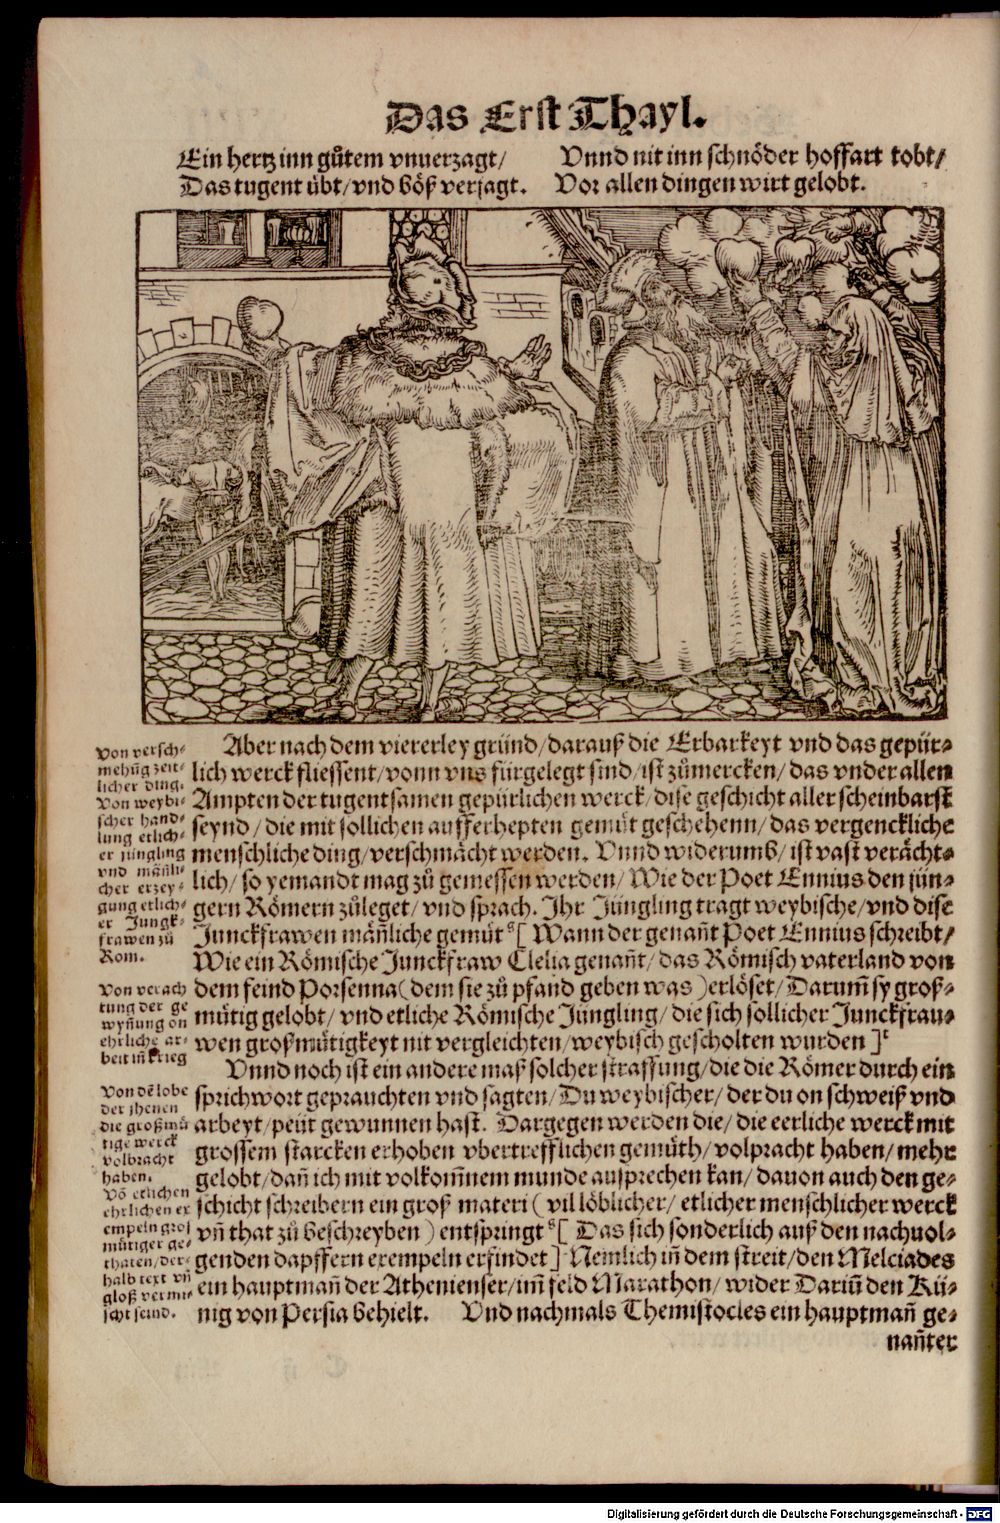 Das Erst Thayl.
Ein hertz inn gůtem vnuerzagt/
Das tugent übt/vnd böß verjagt.
Vnnd nit inn schnöder hoffart tobt/
Vor allen dingen wirt gelobt.
Aber nach dem viererley gründ/darauß die Erbarkeyt vnd das gepür⸗
lich werck fliessent/vonn vns fürgelegt sind/ist zůmercken/das vnder allen
Ampten der tugentsamen gepürlichen werck/dise geschicht aller scheinbarst
seynd/die mit sollichen aufferhepten gemüt geschehenn/das vergenckliche
menschliche ding/verschmächt werden. Vnnd widerumb/ist vast verächt⸗
lich/so yemandt mag zů gemessen werden/Wie der Poet Ennius den jün⸗
gern Römern zůleget/vnd sprach. Ihr Jüngling tragt weybische/vnd dise
Junckfrawen mäñliche gemüt [Wann der genañt Poet Ennius schreibt/
Wie ein Römische Junckfraw Clelia genañt/das Römisch vaterland von
dem feind Porsenna(dem sie zů pfand geben was)erlöset/Darum̃ sy groß⸗
mütig gelobt/vnd etliche Römische Jüngling/die sich sollicher Junckfrau⸗
wen großmütigkeyt nit vergleichten/weybisch gescholten wurden]
Vnnd noch ist ein andere maß solcher straffung/die die Römer durch ein
sprichwort geprauchten vnd sagten/Du weybischer/der du on schweiß vnd
arbeyt/peüt gewunnen hast. Dargegen werden die/die eerliche werck mit
grossem starcken erhoben vbertrefflichen gemüth/volpracht haben/mehr
gelobt/dañ ich mit volkom̃nem munde außprechen kan/dauon auch den ge⸗
schicht schreibern ein groß materi(vil löblicher/etlicher menschlicher werck
vñ that zů beschreyben)entspringt [Das sich sonderlich auß den nachuol⸗
genden dapffern exempeln erfindet] Nemlich iñ dem streit/den Melciades
ein hauptmañ der Athenienser/im̃ feld Marathon/wider Dariũ den Kü⸗
nig von Persia behielt. Vnd nachmals Themistocles ein hauptmañ ge⸗
nañter
Von versch⸗
mehũg zeit⸗
licher ding.
Von weybi⸗
scher hand⸗
lung etlich⸗
er jüngling
vnd mäñli⸗
cher erzey⸗
gung etlich⸗
er Jungk⸗
frawen zů
Rom.
Von verach
tung der ge
wyñung on
ehrliche ar⸗
beit iñ krieg
Von dẽ lobe
der jhenen
die großmü
tige werck
volbracht
haben.
Võ etlichen
ehrlichen ex
empeln groß
mütiger ge⸗
thaten/der⸗
halb text vñ
gloß vermi⸗
scht seind.
Digitalisierung gefördert durch die Deutsche Forschungsgemeinschaft - DFG